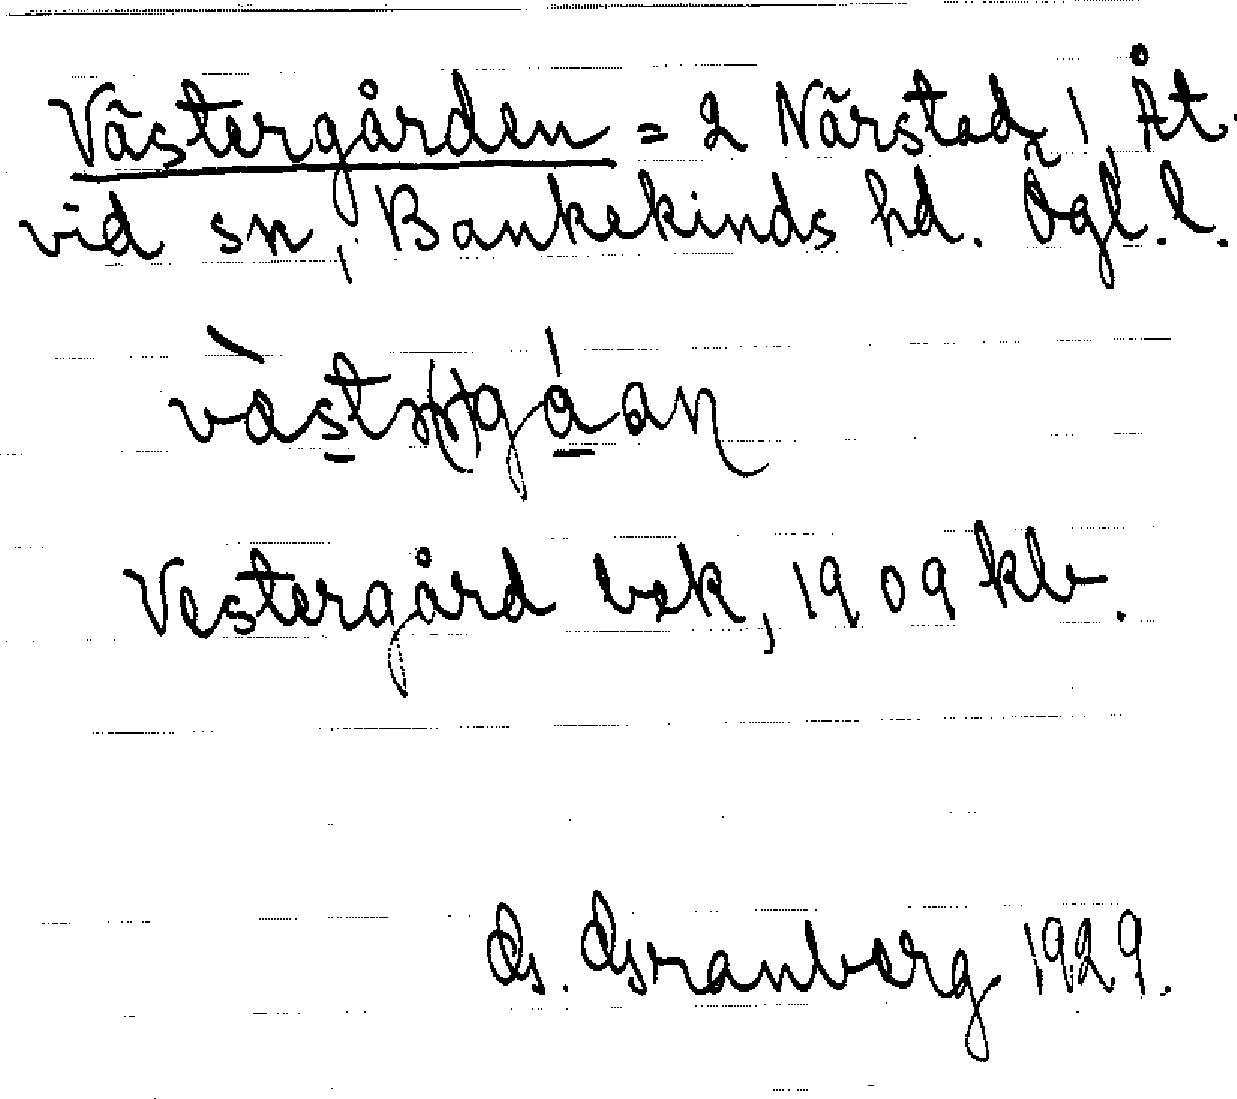 Västergården = 2 Närstad, Åt-
vid sn, Bankekinds hd. Ögl. l.
Vestergård bek, 1909 klr.
G. Granberg 1929.